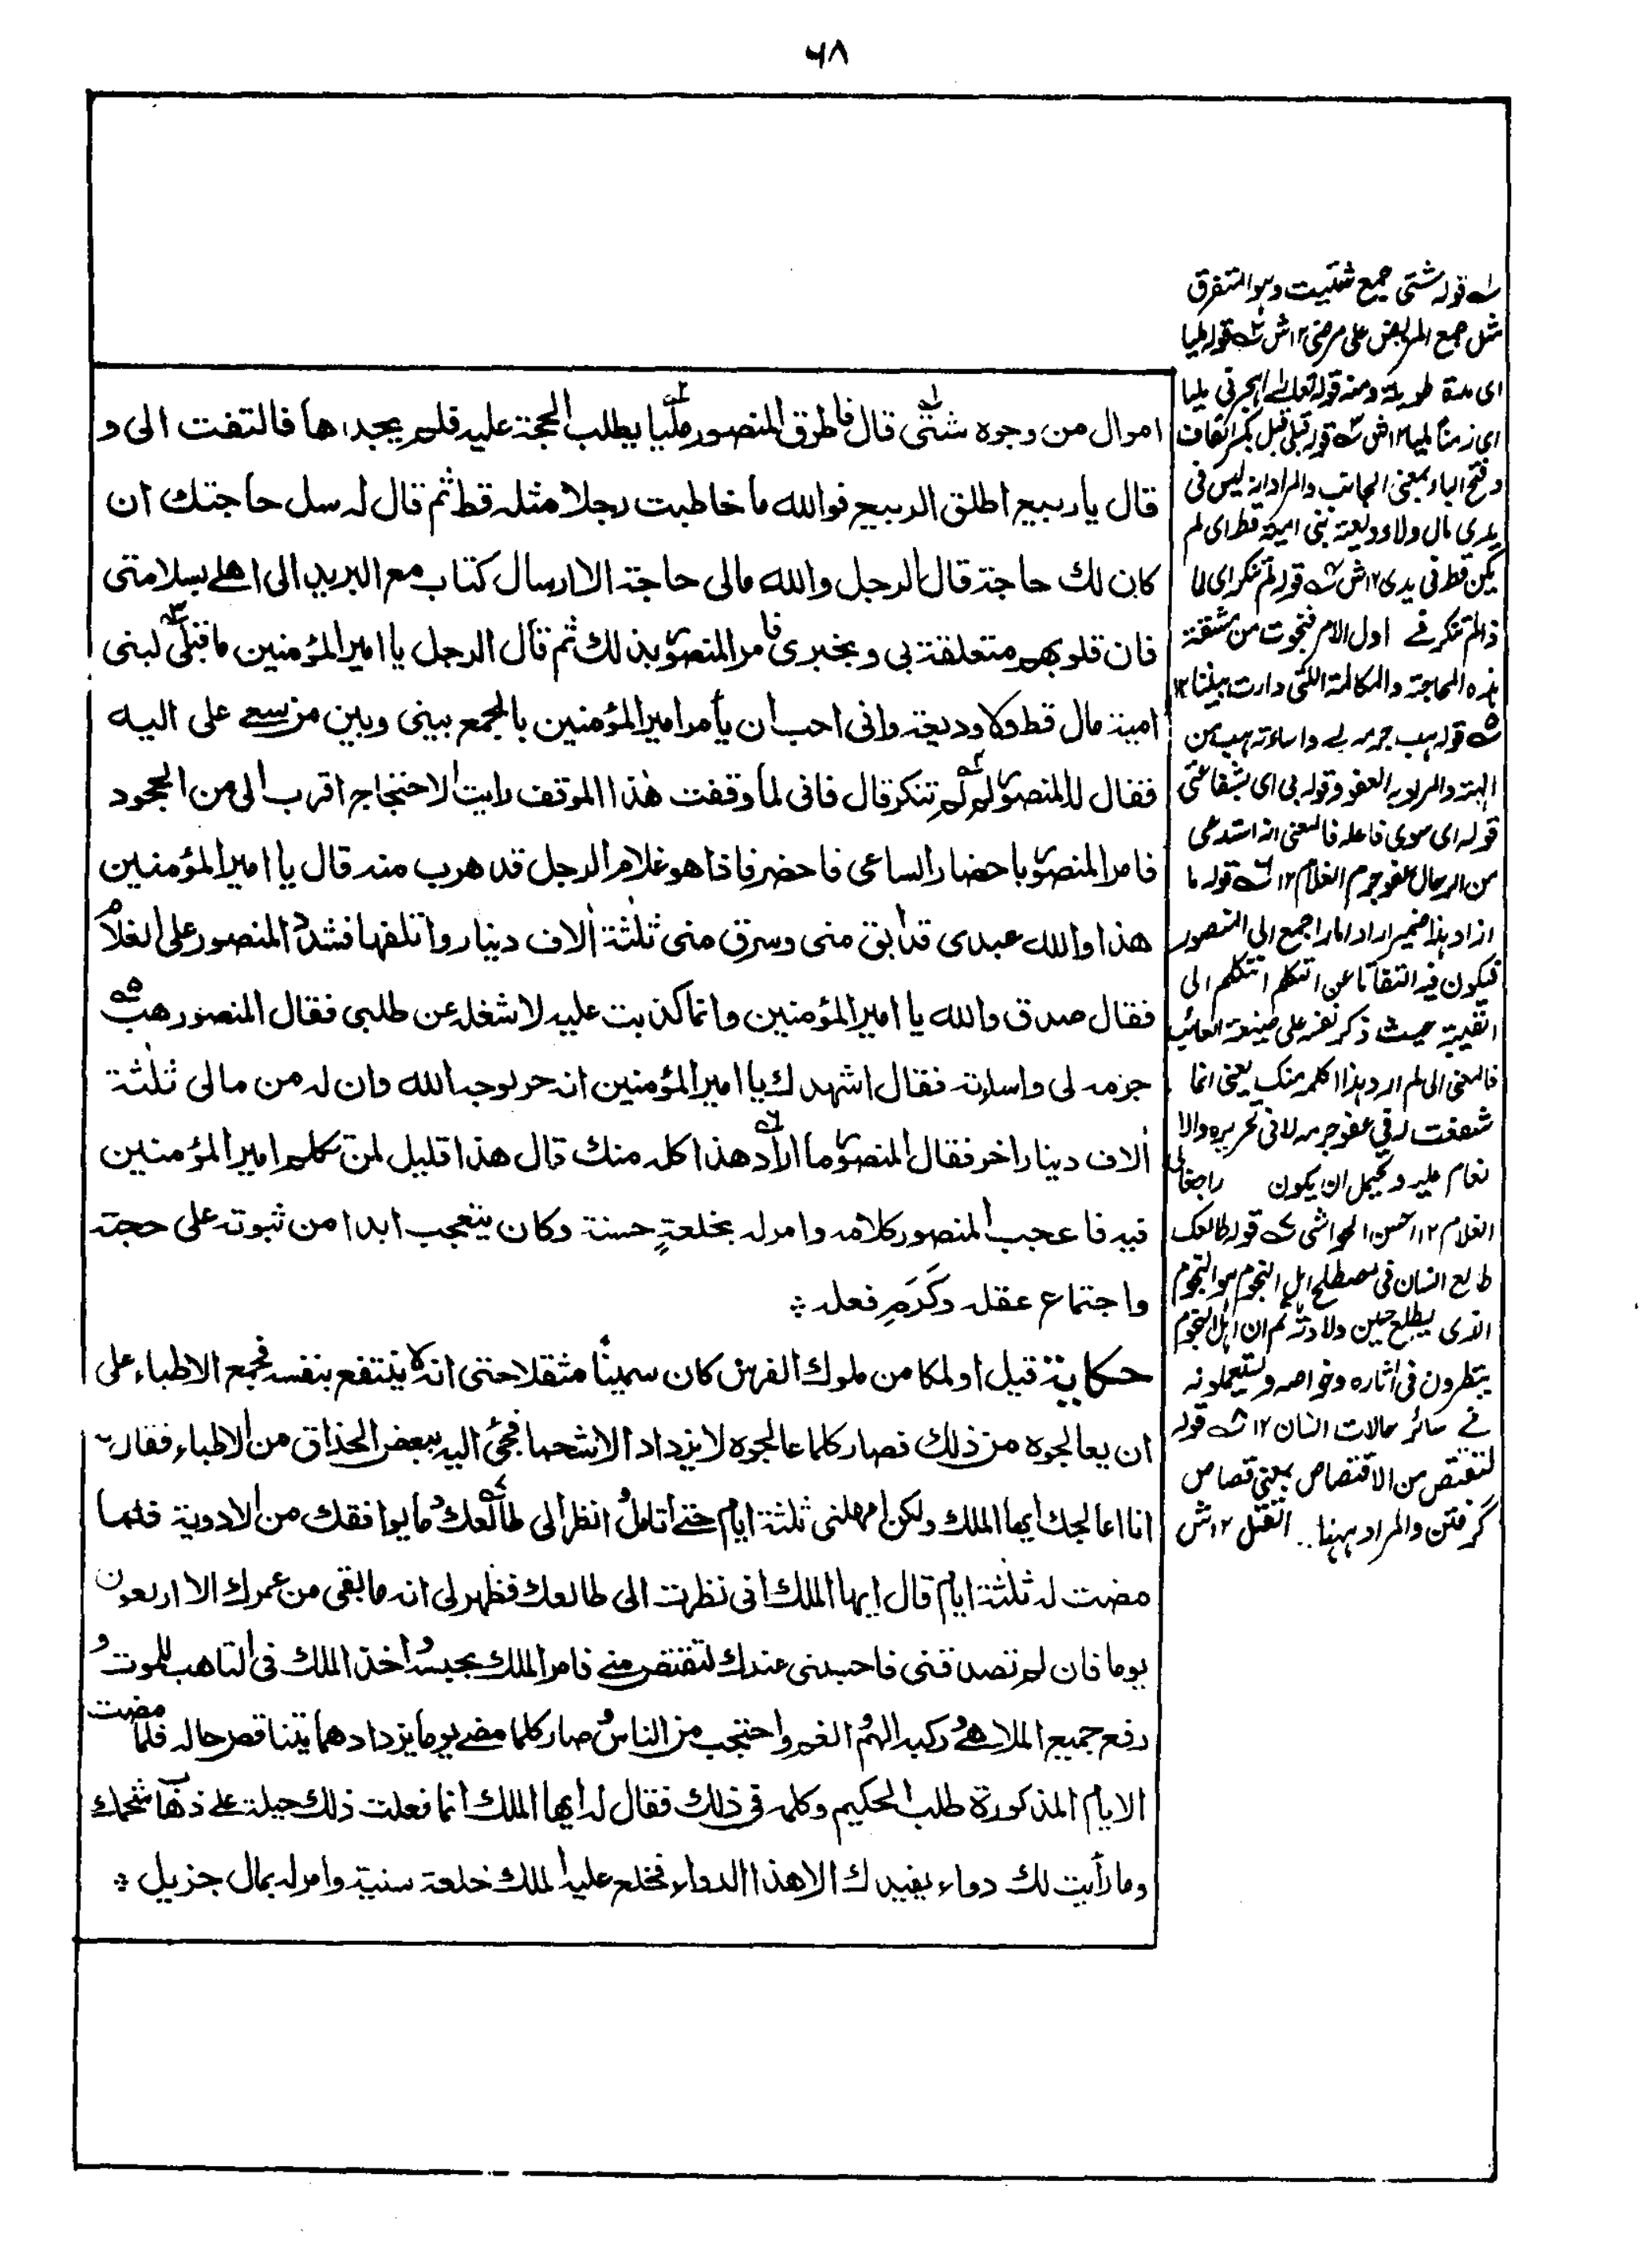 ۶۸
اموال من وجوه شتّٰى قال فاطرق المنصور مليّا يطلب الحجة عليه فلم يجدها فالتفت الى و
قال يا ربيع اطلق الربيع فوالله ما خاطبت رجلا مثله قط ثم قال له سل حاجتك ان
كان لك حاجة قال الرجل والله مالى حاجة الا ارسال كتاب مع البريد الى اهلى بسلامتى
فان قلوبهم متعلقة بى و بخبرى فامر المنصور بذلك ثم قال الرجل يا امير المؤمنين ما قبلى لبنى
امية مال قط ولا وديعة وانى احب ان يأمر امير المؤمنين بالجمع بينى وبين من سعى على اليه
فقال له المنصور لم لم تنكر قال فانى لما وقفت هذا الموقف رايت الاحتجاج اقرب الى من الجحود
فامر المنصور باحضار الساعى فاحضر فاذا هو غلام الرجل قد هرب منه قال يا امير المؤمنين
هذا والله عبدى قد ابق منى وسرق منى ثلثة الاف دينار واتلفها فشدد المنصور على الغلام
فقال صدق والله يا امير المؤمنين وانما كذبت عليه لاشغله عن طلبى فقال المنصور هب
جرمه لى واساءته فقال اشهدك يا امير المؤمنين انه حر لوجه الله وان له من مالى ثلثة
الاف دينار اخر فقال المنصور ما اراد هذا كله منك قال هذا قليل لمن كلم امير المؤمنين
فيه فاعجب المنصور كلامه وامر له بخلعةٍ حسنة وكان يتعجب ابدا من ثبوته على حجته
واجتماع عقله وكَرَمِ فعله ؞
حكاية قيل ان ملكا من ملوك الفرس كان سمينًا مثقلا حتى انه لا ينتفع بنفسه فجمع الاطباء على
ان يعالجوه من ذلك فصار كلما عالجوه لا يزداد الا شحما فجئ اليه ببعض الحذاق من الاطباء فقال له
انا اعالجك ايها الملك ولكن امهلنى ثلثة ايام حتى اتامل و انظر الى طالعك و ما يوافقك من الادوية فلما
مضت له ثلثة ايام قال ايها الملك انى نظرت الى طالعك فظهر لى انه ما بقى من عمرك الا اربعون
يوما فان لم تصدقنى فاحبسنى عندك لتقتص منى فامر الملك بحبسه و اخذ الملك فى التاهب للموت و
رفع جميع الملاهى و ركبه الهم و الغم واحتجب من الناس و صار كلما مضى يوم يزداد هما يتناقص حاله فلما مضت
الايام المذكورة طلب الحكيم وكلمه فى ذلك فقال له ايها الملك انما فعلت ذلك حيلة على ذهاب شحمك
وما رأيت لك دواء يفيدك الا هذا الدواء فخلع عليه الملك خلعة سنية وامر له بمال جزيل ؞
له قوله شتى جمع شتيت وهو المتفرق
مثل جمع المريض على مرضى ١٢ش ٢ه قوله مليا
اى مدة طويلة ومنه قوله تعالى واهجرنى مليا
اى زمنا مليا ١٢ش ٣ه قوله قبلى قبل بكسر القاف
وفتح الباء بمعنى الجانب والمراد انه ليس فى
يدى مال ولا وديعة بنى امية قط اى لم
يكن قط فى يدى ١٢ش ٤ه قوله لم تنكر اى لما
ذا لم تنكر فى اول الامر فنجوت من مشقة
هذه المحاجة والمكالمة اللتى دارت بيننا ١٢
٥ه قوله هب جرمه لى واساءته هب من
الهبة والمراد به العفو وقوله لى اى بشفاعتى
قوله اى سوى فاعله فالمعنى انه استدعى
من الرجل عفو جرم الغلام ١٢ ٦ه قوله ما
اراد هذا ضمير اراد اما راجع الى المنصور
فيكون فيه التفاتا عن التكلم الى
الغيبة حيث ذكر نفسه على صيغة الغائب
فالمعنى انى لم ارد هذا كله منك يعنى انما
شفعت له فى عفو جرمه لا فى تحريره والا
نعام عليه ويحتمل ان يكون راجعا الى
الغلام ١٢ احسن الحواشى ٧ه قوله طالعك
طالع انسان فى مصطلح اهل النجوم هو النجوم
الذى يطلع حين ولادته ثم ان اهل النجوم
ينظرون فى اثاره وخواصه ويستعملونه
فى سائر حالات انسان ١٢ ٨ه قوله
لتقتص من الاقتصاص بمعنى قصاص
گرفتن والمراد ههنا .. القتل ١٢ش